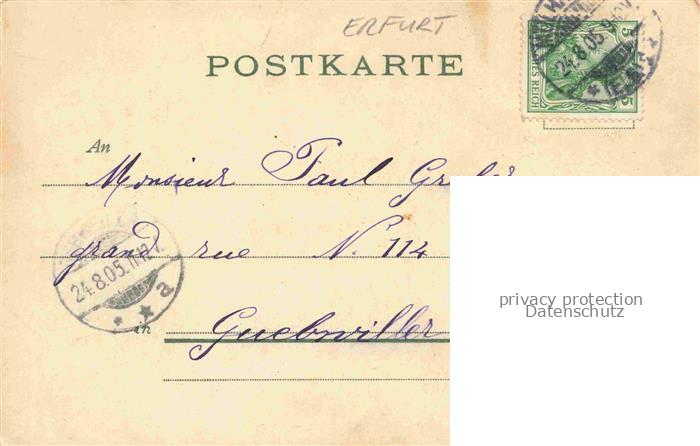 ERFURT
POSTKARTE
5
24.8.05.
5
An
Monsieur Paul
grand rue N. 114
24.8.05. 11-12 V.
a
in Guebwiller
privacy protection
Datenschutz